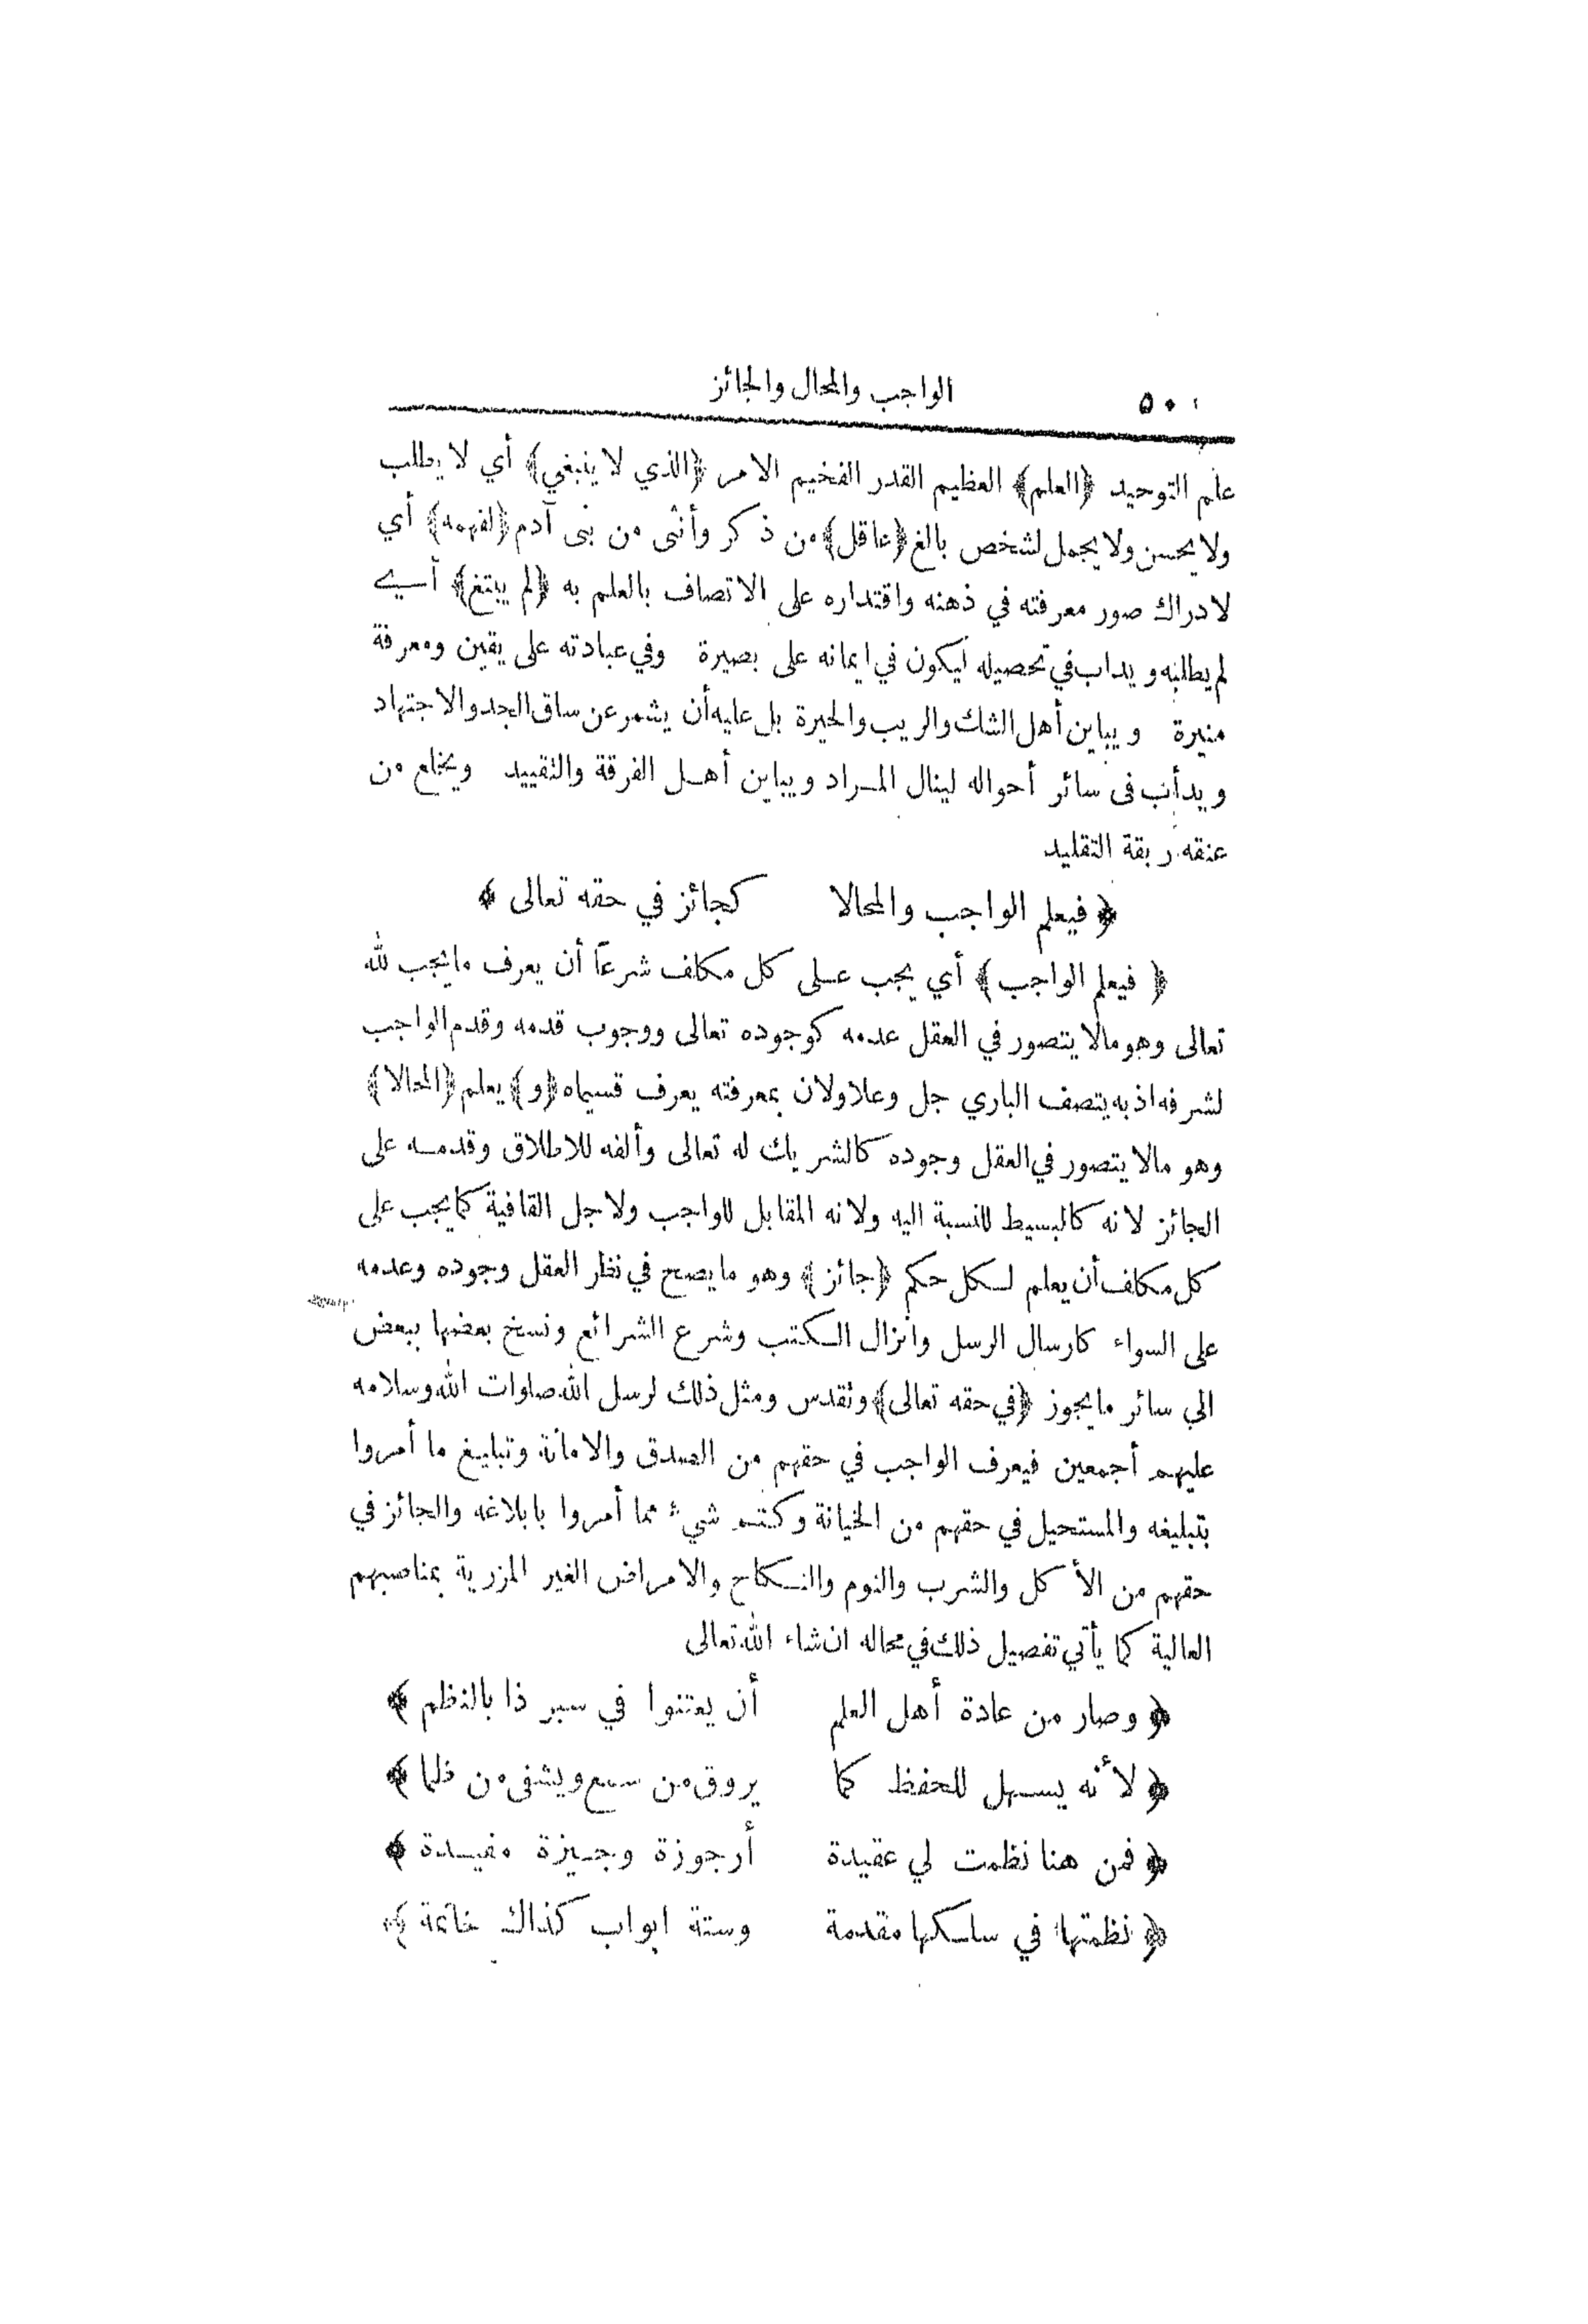 ٥٠ الواجب والمحال والجائز
علم التوحيد ﴿العلم﴾ العظيم القدر الفخيم الامر ﴿الذي لا ينبغي﴾ أي لا يطلب
ولا يحسن ولا يجمل لشخص بالغ ﴿عاقل﴾ من ذكر وأنثى من بنى آدم ﴿لفهمه﴾ أي
لادراك صور معرفته في ذهنه واقتداره على الاتصاف بالعلم به ﴿لم يبتغ﴾ أي
لم يطلبه ويداب في تحصيله ليكون في ايمانه على بصيرة وفي عبادته على يقين ومعرفة
منيرة ويباين أهل الشك والريب والحيرة بل عليه أن يشمر عن ساق الجد والاجتهاد
ويدأب فى سائر أحواله لينال المراد ويباين أهل الفرقة والتقييد ويخلع من
عنقه ربقة التقليد
﴿ فيعلم الواجب والمحالا كجائز في حقه تعالى ﴾
﴿ فيعلم الواجب ﴾ أي يجب على كل مكلف شرعاً أن يعرف ما يجب لله
تعالى وهو مالا يتصور في العقل عدمه كوجوده تعالى ووجوب قدمه وقدم الواجب
لشرفه اذ به يتصف الباري جل وعلا ولان بمعرفته يعرف قسيماه ﴿و﴾ يعلم ﴿المحالا﴾
وهو مالا يتصور في العقل وجوده كالشريك له تعالى وألفه للاطلاق وقدمه على
الجائز لانه كالبسيط للنسبة اليه ولانه المقابل للواجب ولاجل القافية كما يجب على
كل مكلف أن يعلم لكل حكم ﴿جائز﴾ وهو ما يصح في نظر العقل وجوده وعدمه
على السواء كارسال الرسل وانزال الكتب وشرع الشرائع ونسخ بعضها ببعض
الي سائر ما يجوز ﴿في حقه تعالى﴾ وتقدس ومثل ذلك لرسل الله صلوات الله وسلامه
عليهم أجمعين فيعرف الواجب في حقهم من الصدق والامانة وتبليغ ما أمروا
بتبليغه والمستحيل في حقهم من الخيانة وكتم شيء مما أمروا بابلاغه والجائز في
حقهم من الأكل والشرب والنوم والنكاح والامراض الغير المزرية بمناصبهم
العالية كما يأتي تفصيل ذلك في محاله ان شاء الله تعالى
﴿ وصار من عادة أهل العلم أن يعتنوا في سبر ذا بالنظم ﴾
﴿ لأنه يسهل للحفظ كما يروق من سمع ويشفى من ظما ﴾
﴿ فمن هنا نظمت لي عقيدة أرجوزة وجيزة مفيدة ﴾
﴿ نظمتها في سلكها مقدمة وستة ابواب كذاك خاتمة ﴾